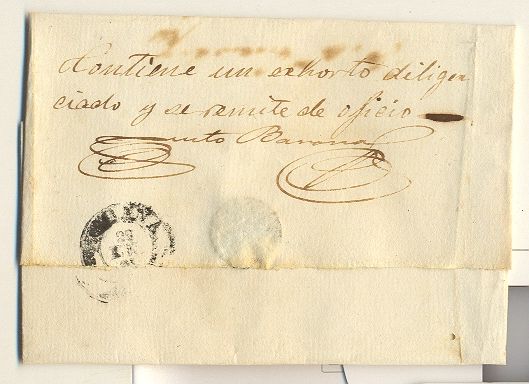 Contiene un exhorto diligen
ciado y se remite de oficio
Barona